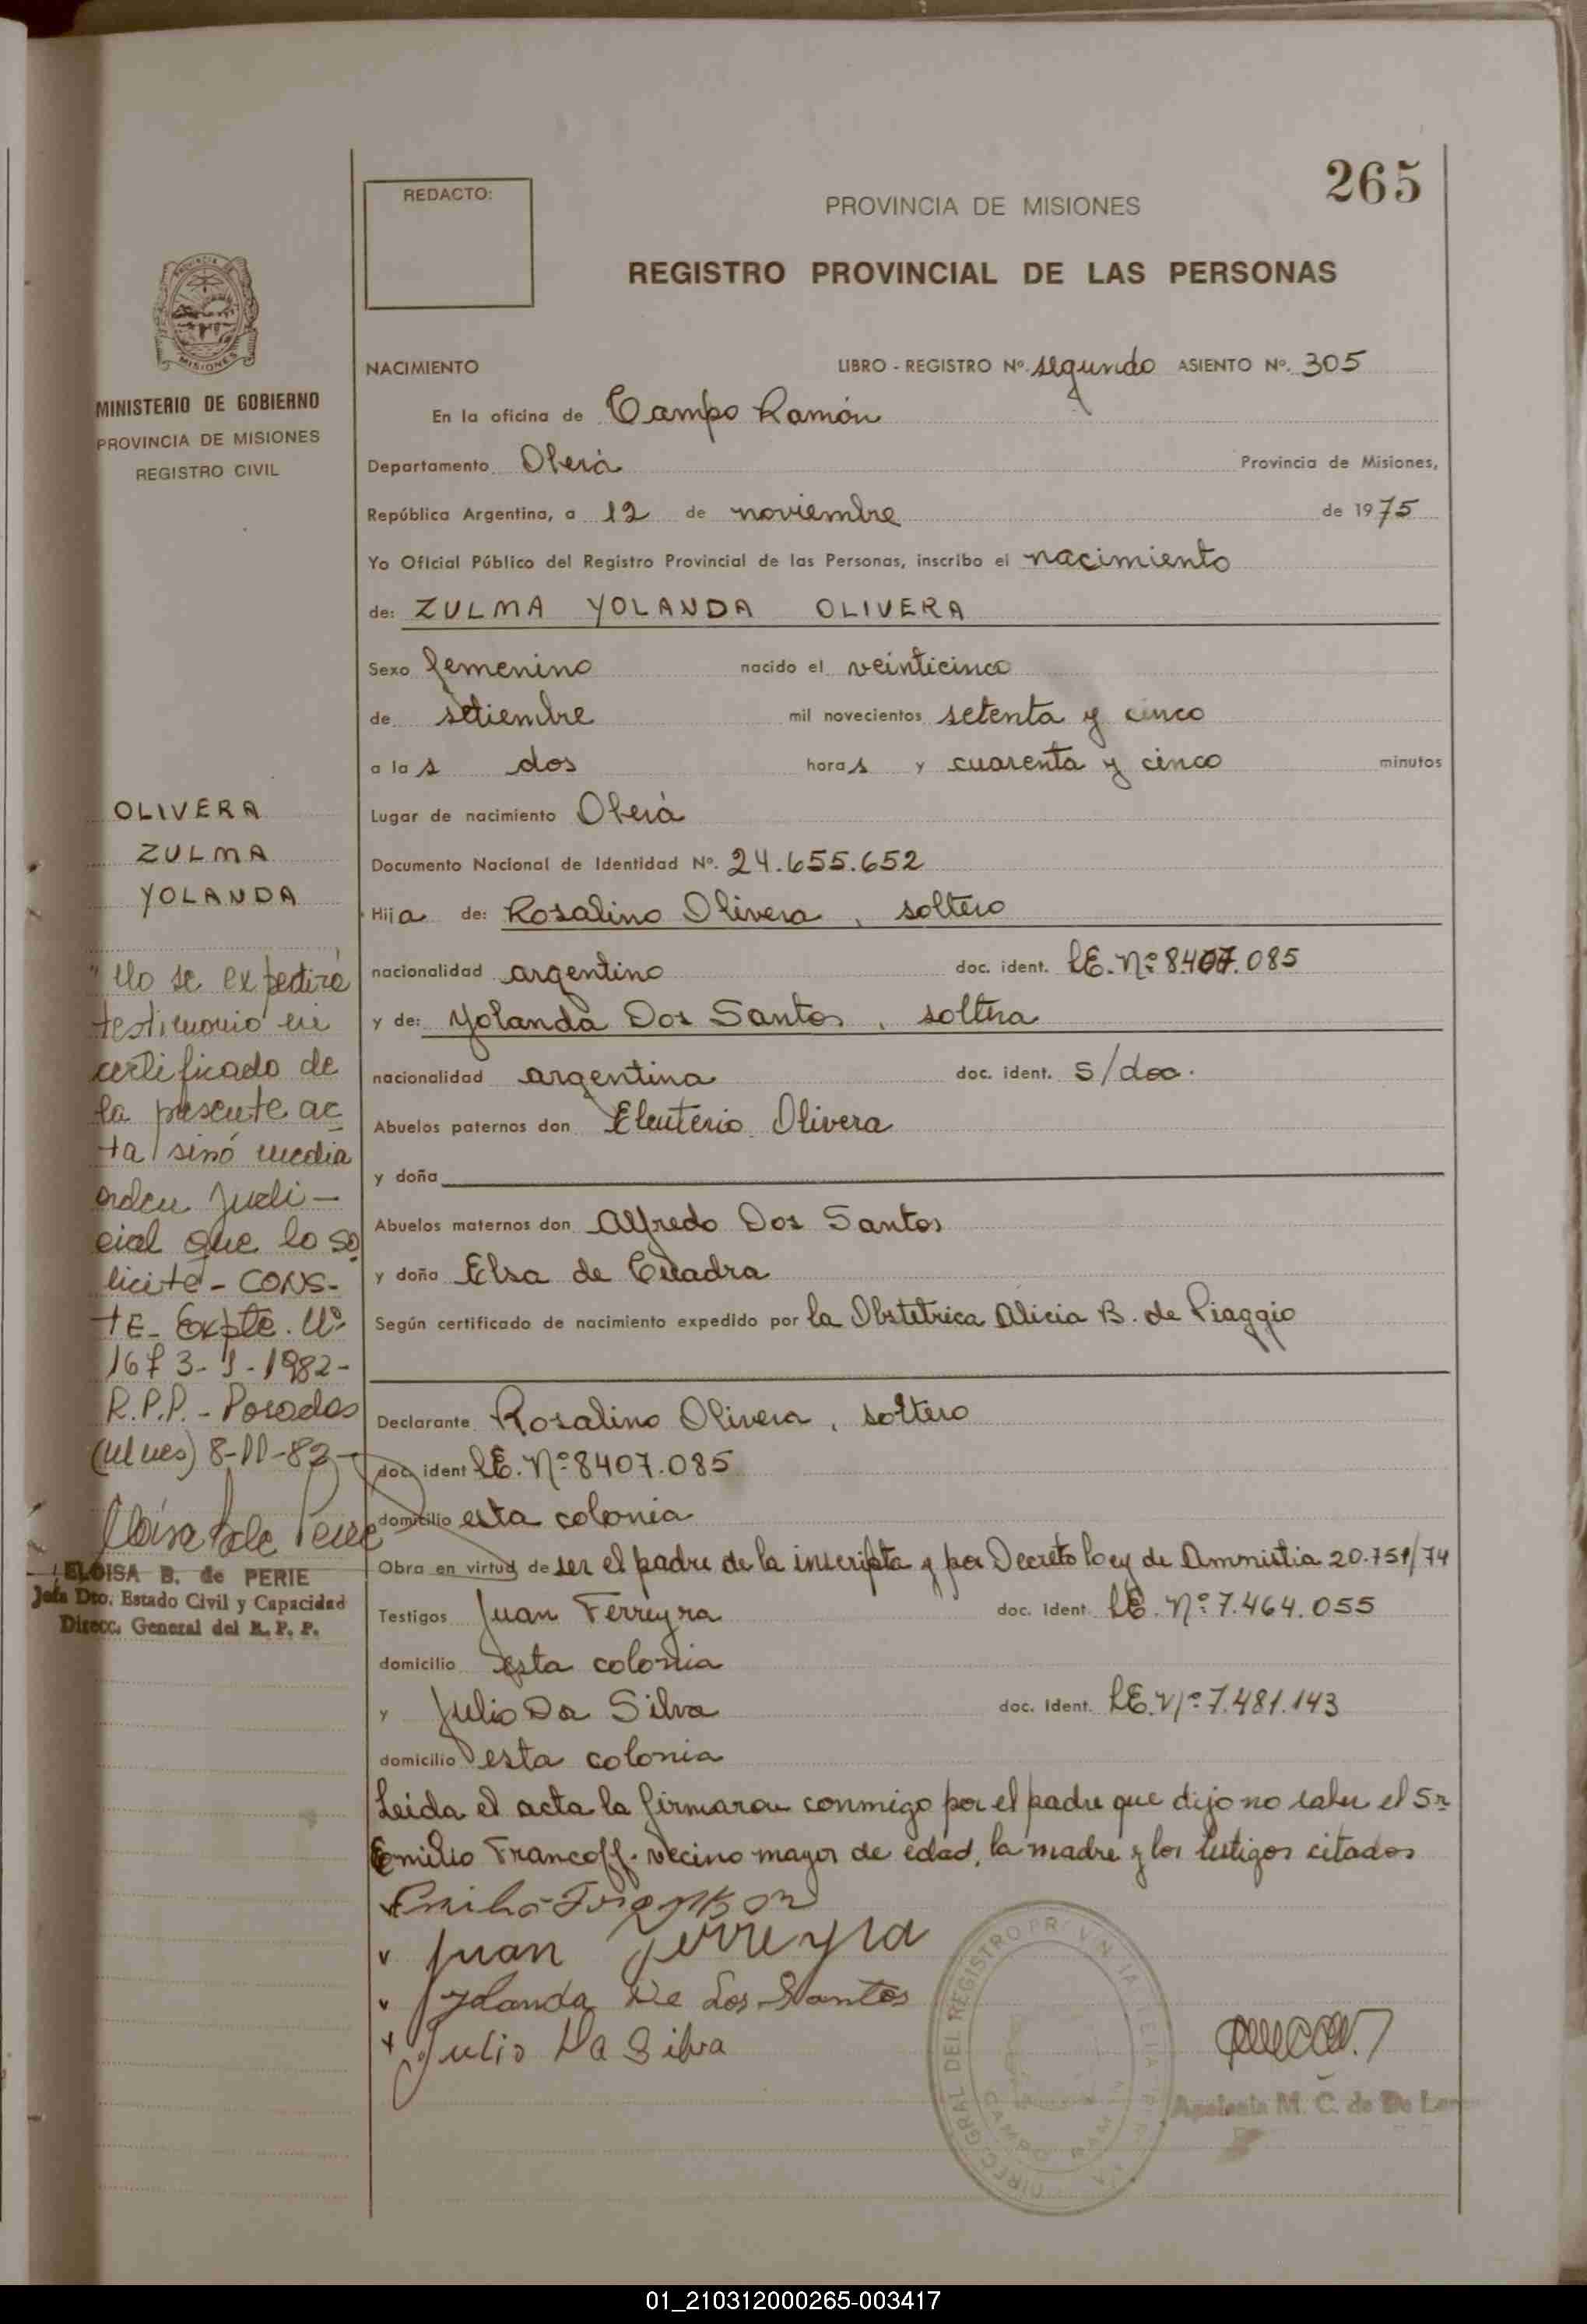 265
REDACTO:
PROVINCIA DE MISIONES
REGISTRO PROVINCIAL DE LAS PERSONAS
PROVINCIA DE
MISIONES
MINISTERIO DE GOBIERNO
PROVINCIA DE MISIONES
REGISTRO CIVIL
NACIMIENTO LIBRO - REGISTRO Nº. segundo ASIENTO Nº. 305
En la oficina de Campo Ramón
Departamento Oberá Provincia de Misiones,
República Argentina, a 12 de noviembre de 1975
Yo Oficial Público del Registro Provincial de las Personas, inscribo el nacimiento
de: ZULMA YOLANDA OLIVERA
Sexo femenino nacido el veinticinco
de setiembre mil novecientos setenta y cinco
a las dos horas y cuarenta y cinco minutos
Lugar de nacimiento Oberá
Documento Nacional de Identidad Nº. 24.655.652
Hija de: Rosalino Olivera, soltero
nacionalidad argentino doc. ident. LE. Nº 8407.085
y de: Yolanda Dos Santos, soltera
nacionalidad argentina doc. ident. s/doc.
Abuelos paternos don Eleuterio Olivera
y doña
Abuelos maternos don Alfredo Dos Santos
y doña Elsa de Cuadra
Según certificado de nacimiento expedido por la Obstetrica Alicia B. de Piaggio
Declarante Rosalino Olivera, soltero
doc. ident LE. Nº 8407.085
domicilio esta colonia
Obra en virtud de ser el padre de la inscripta y por Decreto ley de Ammistia 20.751/74
Testigos Juan Ferreyra doc. Ident. LE. Nº 7.464.055
domicilio esta colonia
y Julio Da Silva doc. Ident. LE. Nº 7.481.143
domicilio esta colonia
Leida el acta la firmaron conmigo por el padre que dijo no saber el Sr
Emilio Francoff. vecino mayor de edad, la madre y los testigos citados
Juan Ferreyra
Yolanda De Los Santos
Julio Da Silva
DIREC. GRAL DEL REGISTRO
CAMPO RAMON
M. C. de De
OLIVERA
ZULMA
YOLANDA
"No se expedirá
testimonio ni
certificado de
la presente ac
ta sinó media
orden Judi-
cial que lo so
licite - CONS-
TE - Expte. Nº
1982-
R.P.P. - Posadas
(Mnes) 8-11-82
ELOISA B. de PERIE
Jefa Dto. Estado Civil y Capacidad
Direcc. General del R. P. P.
01_210312000265-003417